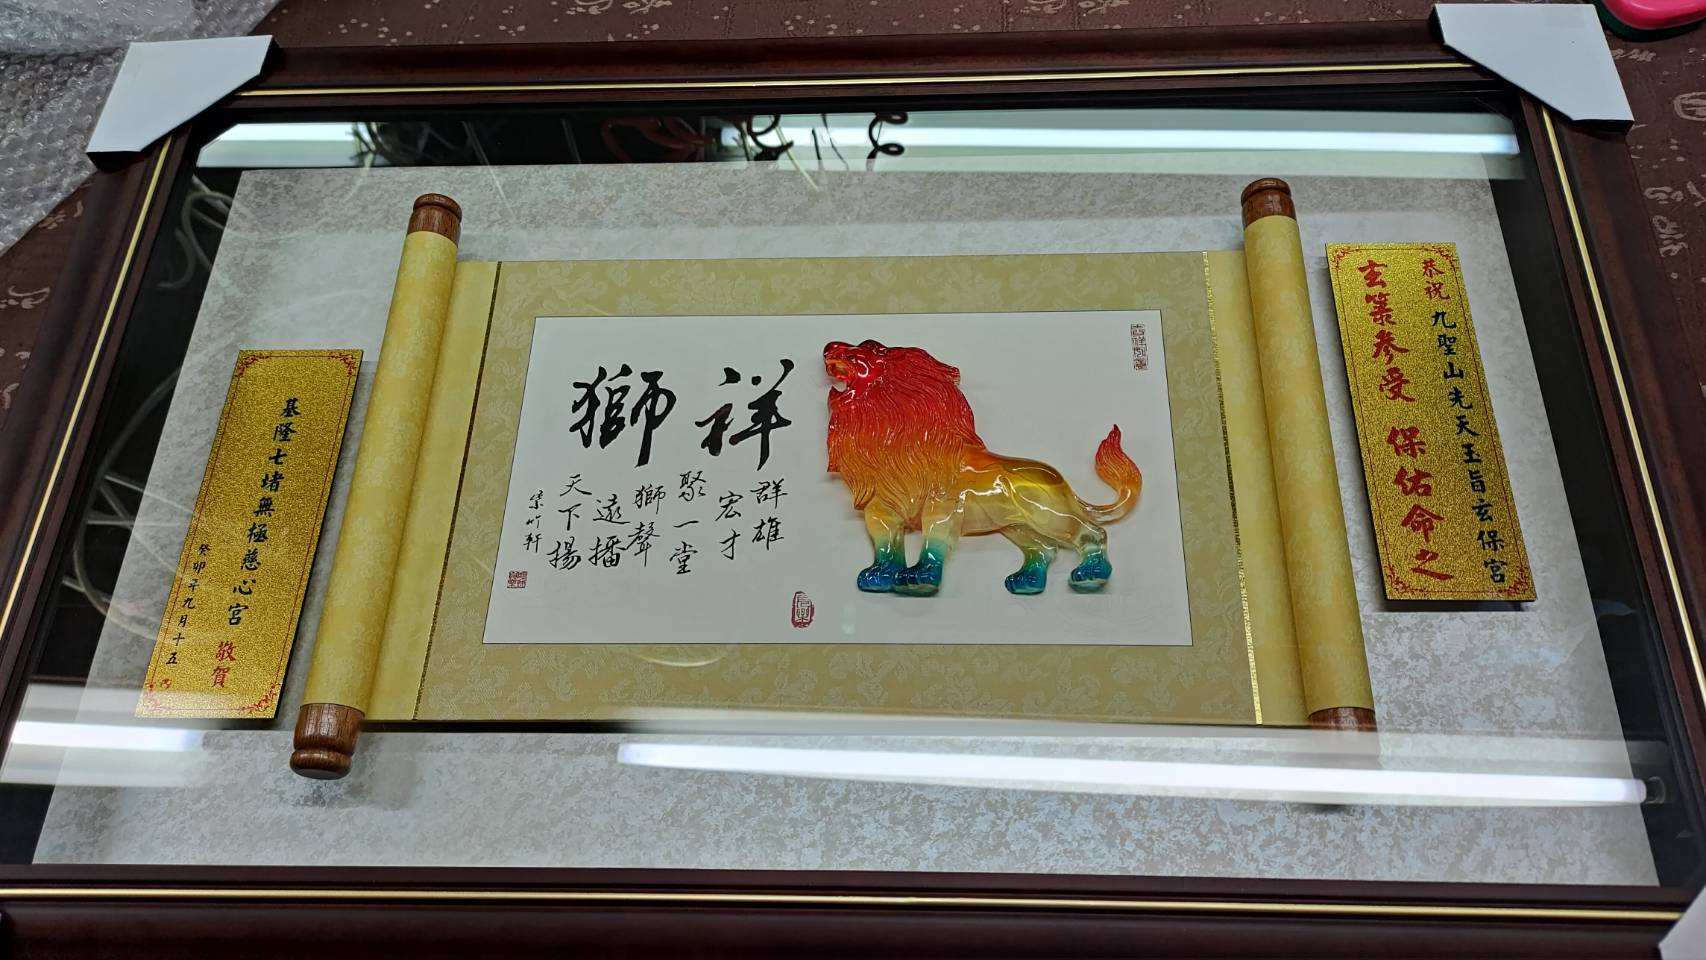 恭祝 九聖山先天玉旨玄保宮
玄策參受 保佑命之
祥獅
群雄
宏才
聚一堂
獅聲
遠播
天下揚
基隆七堵無極慈心宮 敬賀
癸卯年九月十五